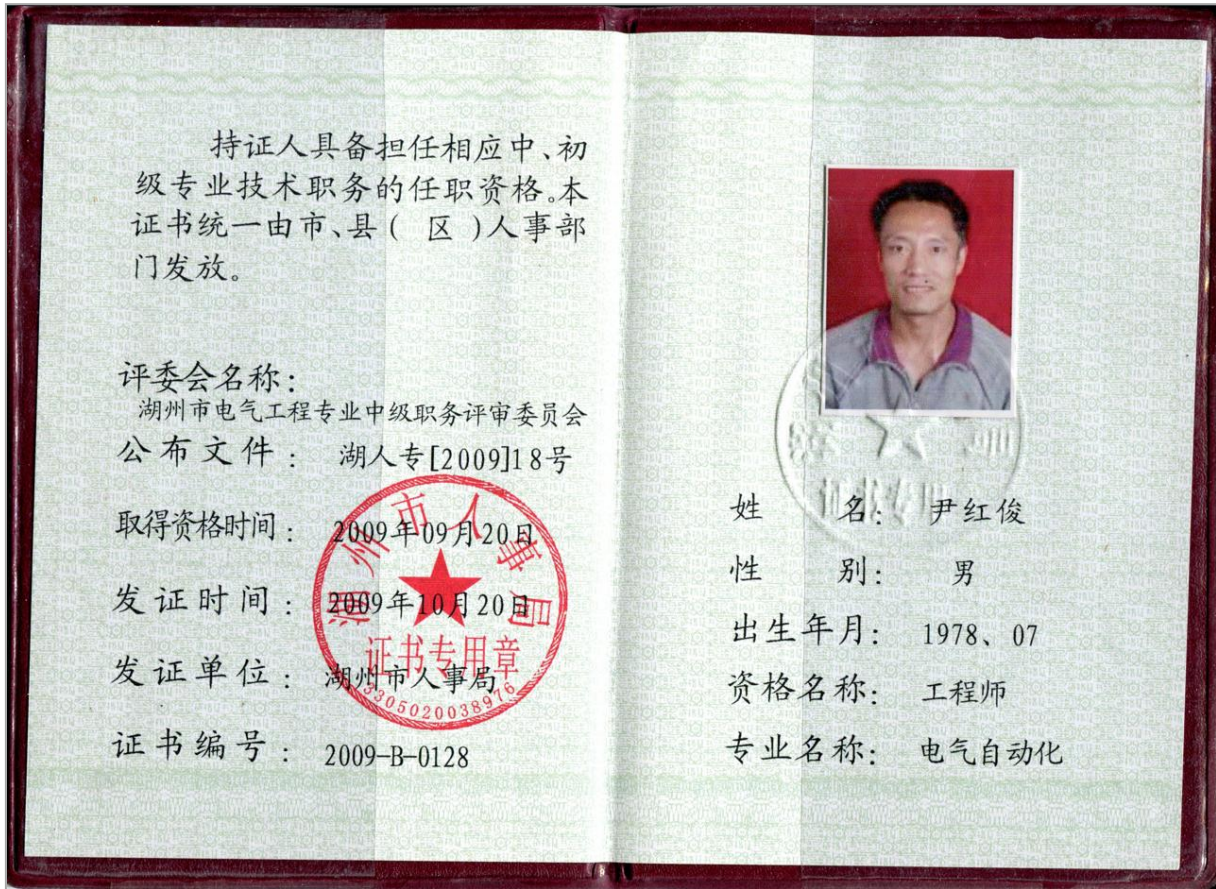 持证人具备担任相应中、初
级专业技术职务的任职资格。本
证书统一由市、县( 区 )人事部
门发放。
评委会名称：
湖州市电气工程专业中级职务评审委员会
公布文件： 湖人专[2009]18号
取得资格时间： 2009年09月20日
发证时间： 2009年10月20日
发证单位： 湖州市人事局
证书编号： 2009-B-0128
湖州市人事局
证书专用章
3305020038976
证书专用
姓 名： 尹红俊
性 别： 男
出生年月： 1978、07
资格名称： 工程师
专业名称： 电气自动化